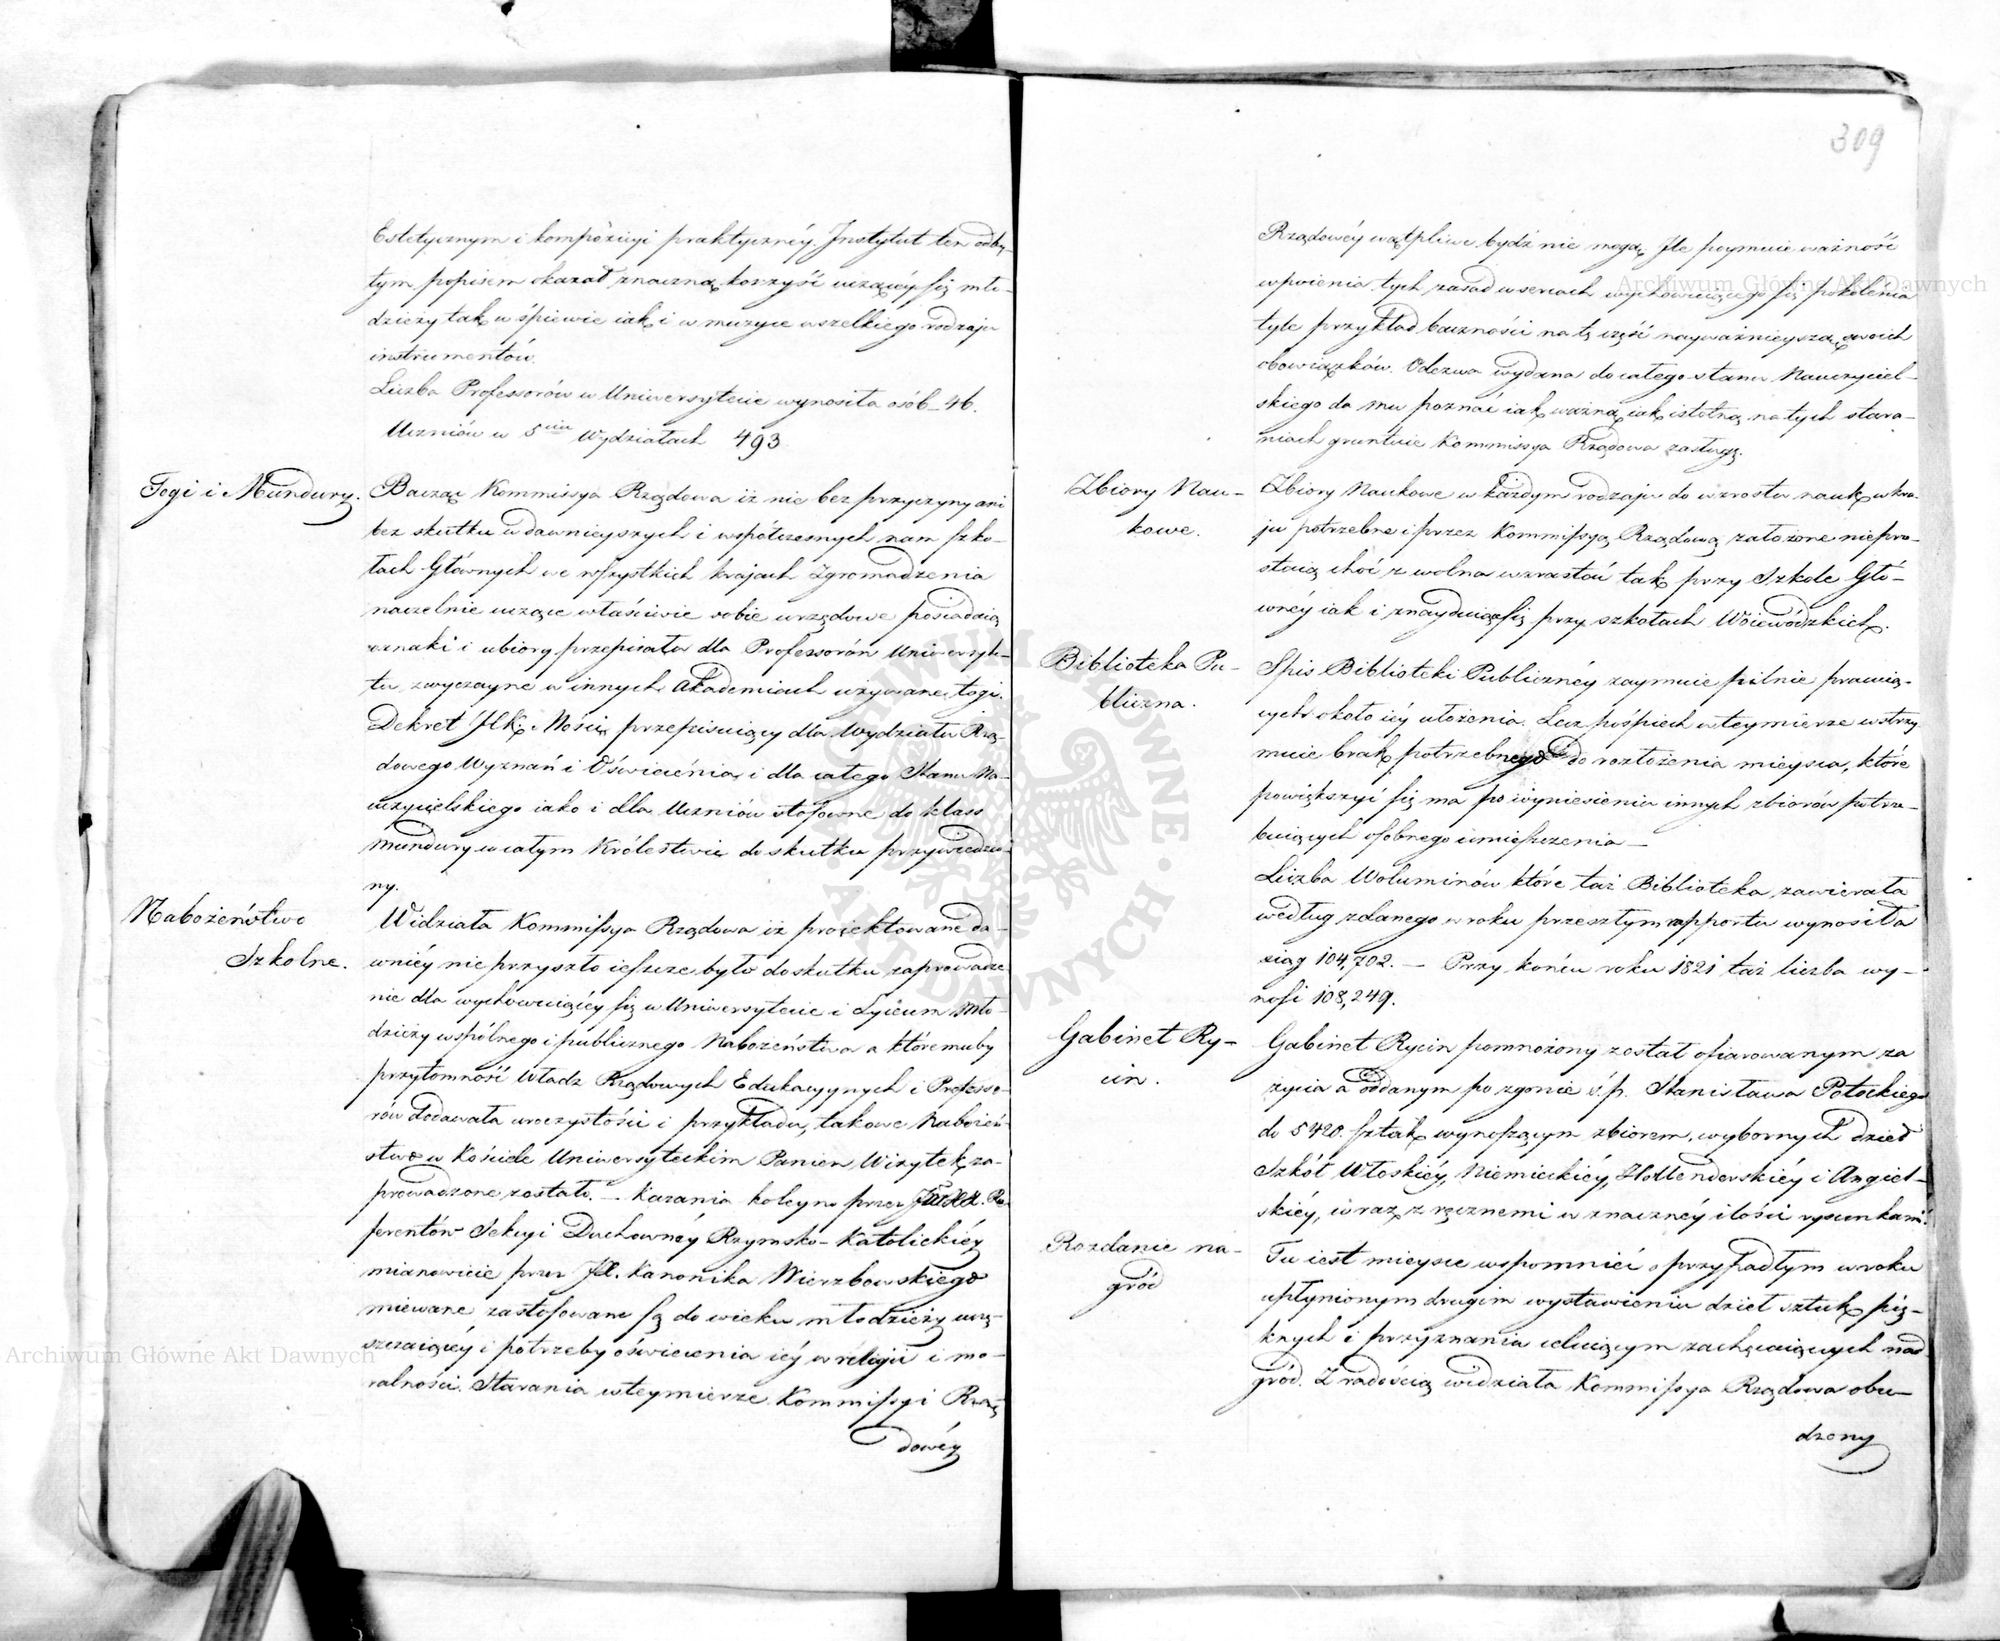 Estetycznym i kompozycyi praktycznéy. Instytut ten odby-
tym popisem okazał znaczną korzyść uczącéy się mło-
dzieży tak w śpiewie iak i w muzyce wszelkiego rodzaju
instrumentów.
Liczba Professorów w Uniwersytecie wynosiła osób 46.
Uczniów w 5ciu Wydziałach 493
Togi i Mundury.
Bacząc Kommissya Rządowa iż nie bez przyczyny ani
bez skutku w dawnieyszych i współczesnych nam szko-
łach Głównych we wszystkich krajach Zgromadzenia
naczelnie uczące właściwie sobie urzędowe posiadaią
oznaki i ubiory przepisała dla Professorów Uniwersyte-
tu zwyczayne w innych Akademiach używane togi.
Dekret JKMości przepisuiący dla Wydziału Rzą-
dowego Wyznań i Oświecenia i dla całego Stanu Na-
uczycielskiego iako i dla Uczniów stosowne do klass
mundury w całym Królestwie do skutku przywiedzio-
ny.
Nabożeństwo
Szkolne.
Widziała Kommissya Rządowa iż proiektowane da-
wniéy nie przyszło ieszcze było do skutku zaprowadze
nie dla wychowuiącéy się w Uniwersytecie i Lyceum Mło-
dzieży wspólnego i publicznego Nabożeństwa a któremuby
przytomność Władz Rządowych Edukacyynych i Professo-
rów dodawała uroczystości i przykładu, takowe Nabożeń-
stwo w Kościele Uniwersyteckim Panien Wizytek za-
prowadzone zostało. — Kazania koleyno przez Re-
ferentów Sekcyi Duchownéy Rzymsko-Katolickiéy
mianowicie przez Kanonika Wierzbowskiego
miewane zastosowane są do wieku młodzieży uczę-
szczaiącéy i potrzeby oświecenia iéy w religii i mo-
ralności. Starania w teymierze Kommissyi Rzą-
dowéy
309
Rządowéy wątpliwe bydź nie mogą. Ile poymuie ważność
wpoienia tych zasad w sercach wychowuiącego się pokolenia
tyle przykład baczności na tę część nayważnieyszą swoich
obowiązków. Odezwa wydana do całego stanu Nauczyciel-
skiego da mu poznać iak ważną iak istotną na tych stara-
niach gruntuie Kommissya Rządowa zasługę.
Zbiory Nau-
kowe.
Zbiory Naukowe w każdym rodzaju do wzrostu nauk w kra-
ju potrzebne i przez Kommissyą Rządową założone nie prze-
staią choć z wolna wzrastać tak przy Szkole Głó-
wnéy iak i znayduiące się przy szkołach Woiewódzkich.
Biblioteka Pu-
bliczna.
Spis Biblioteki Publicznéy zaymuie pilnie pracuią-
cych około iéy ułożenia. Lecz pośpiech w teymierze wstrzy
muie brak potrzebnego do rozłożenia mieysca, które
powiększyć się ma po wyniesieniu innych zbiorów potrze-
buiących osobnego umieszczenia —
Liczba Woluminów które taż Biblioteka zawierała
według zdanego w roku przeszłym rapportu wynosiła
ksiąg 104,702. — Przy końcu roku 1821 taż liczba wy-
nosi 108,249.
Gabinet Ry-
cin.
Gabinet Rycin pomnożony został ofiarowanym za
życia a oddanym po zgonie ś.p. Stanisława Potockiego
do 5420. sztuk wynoszącym zbiorem, wybornych dzieł
Szkół Włoskiéy, Niemieckiéy, Hollenderskiéy i Angiel-
skiéy, wraz z ręcznemi w znacznéy ilości rysunkami.
Rozdanie na-
gród
Tu iest mieysce wspomnieć o przypadłym w roku
upłynionym drugim wystawieniu dzieł sztuk pię-
knych i przyznania celuiącym zachęcaiących nad-
gród. Z radością widziała Kommissya Rządowa obu-
dzony
Archiwum Główne Akt Dawnych
Archiwum Główne Akt Dawnych
ARCHIWUM GŁÓWNE AKT DAWNYCH